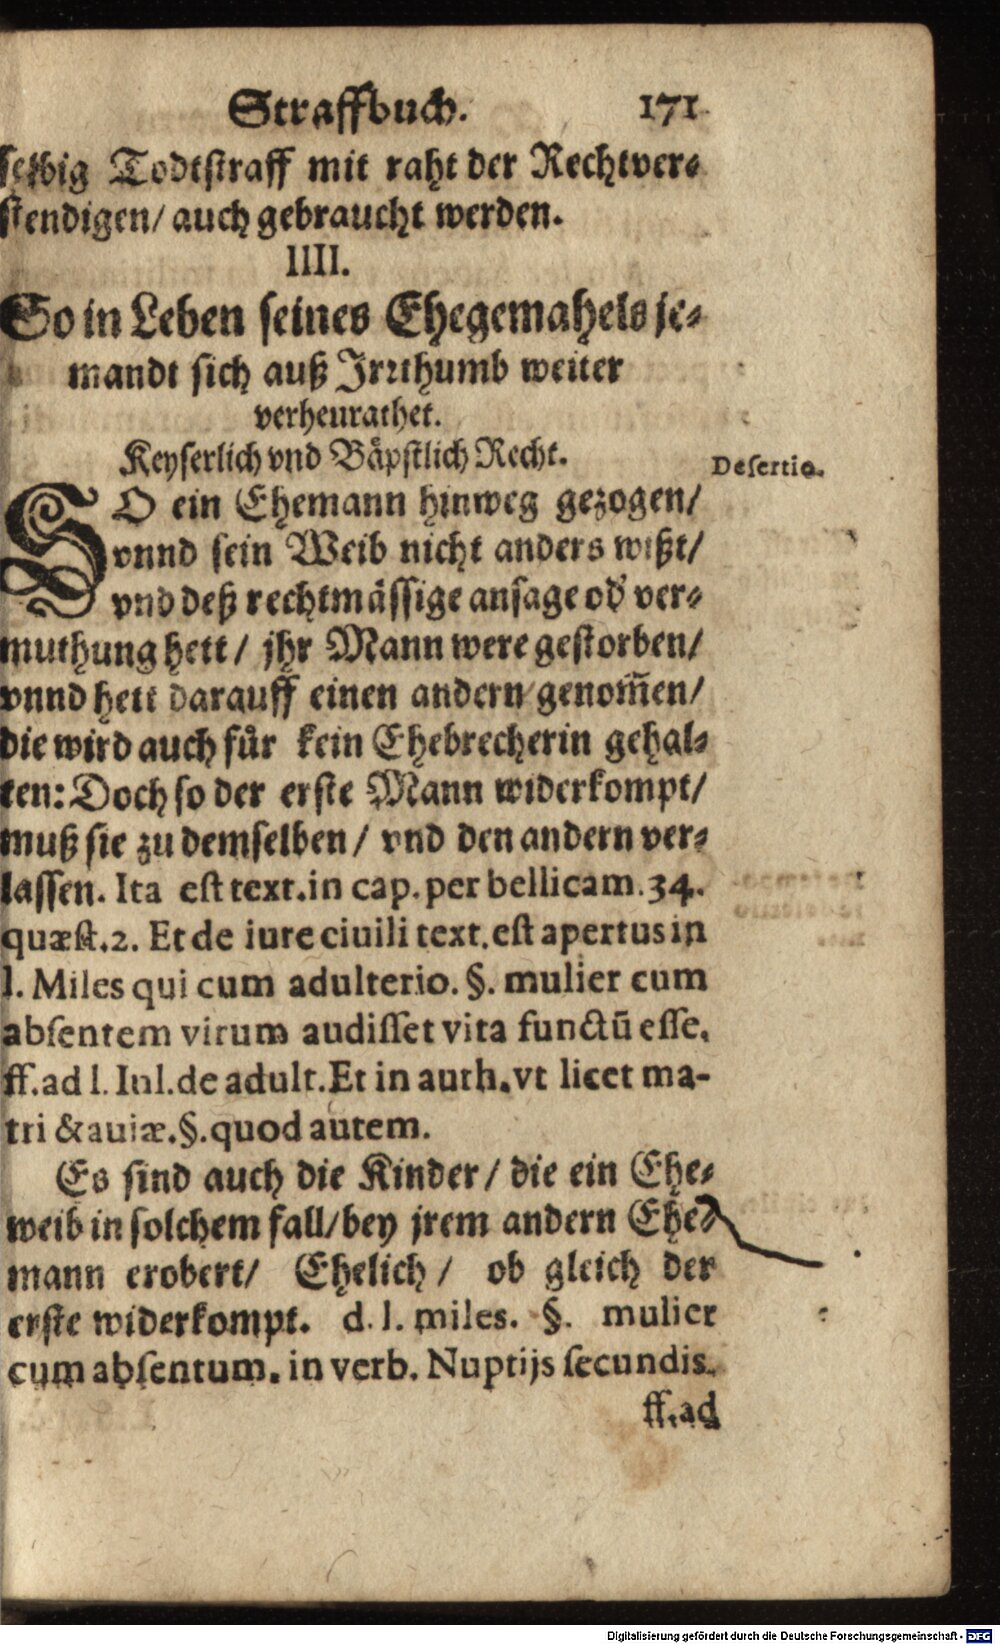 Straffbuch. 171
selbig Todtstraff mit raht der Rechtver-
stendigen/ auch gebraucht werden.
IIII.
So in Leben seines Ehegemahels je-
mandt sich auß Irrthumb weiter
verheurathet.
Keyserlich vnd Båpstlich Recht.
Desertio.
SO ein Ehemann hinweg gezogen/
vnnd sein Weib nicht anders wißt/
vnd deß rechtmässige ansage od' ver-
muthung hett / jhr Mann were gestorben/
vnnd hett darauff einen andern genom̃en/
die wird auch für kein Ehebrecherin gehal-
ten: Doch so der erste Mann widerkompt/
muß sie zu demselben / vnd den andern ver-
lassen. Ita est text. in cap. per bellicam. 34.
quæst. 2. Et de iure ciuili text. est apertus in
l. Miles qui cum adulterio. §. mulier cum
absentem virum audisset vita functũ esse.
ff. ad l. Iul. de adult. Et in auth. vt licet ma-
tri & auiæ. §. quod autem.
Es sind auch die Kinder / die ein Ehe-
weib in solchem fall/ bey jrem andern Ehe-
mann erobert/ Ehelich / ob gleich der
erste widerkompt. d. l. miles. §. mulier
cum absentum. in verb. Nuptijs secundis.
ff. ad
Digitalisierung gefördert durch die Deutsche Forschungsgemeinschaft - DFG